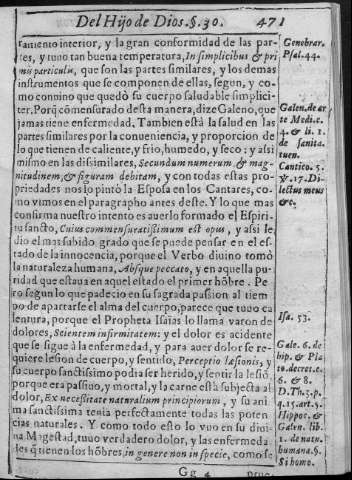 Del Hijo de Dios. §. 30. 471
ramento interior, y la gran conformidad de las par-
tes, y tuvo tan buena temperatura, In simplicibus & pri
mis particulis, que son las partes similares, y los demas
instrumentos que se componen de ellas, segun, y co-
mo convino que quedò su cuerpo saludable simplici-
ter. Porq̃ cõmensurado desta manera, dize Galeno, que
jamas tiene enfermedad. Tambien està la salud en las
partes similares por la conueniencia, y proporcion de
lo que tienen de caliente, y frio, humedo, y seco: y assi
mismo en las dissimilares, Secundum numerum, & mag-
nitudinem, & figuram debitam, y con todas estas pro-
priedades nos lo pintò la Esposa en los Cantares, co-
mo vimos en el paragrapho antes deste. Y lo que mas
confirma nuestro intento es averlo formado el Espiri-
tu santo, Cuius commensuratissimum est opus, y assi le
dio el mas subido grado que se puede pensar en el es-
tado de la innocencia, porque el Verbo diuino tomò
la naturaleza humana, Absque peccato, y en aquella pu-
ridad que estaua en aquel estado el primer hõbre. Pe
ro segun lo que padecio en su sagrada passion al tiem
po de apartarse el alma del cuerpo, parece que tuuo ca
lentura, porque el Propheta Isaias lo llama varon de
dolores, Scientem infirmitatem: y el dolor es acidente
que se sigue à la enfermedad, y para auer dolor se re-
quiere lesion de cuerpo, y sentirlo, Perceptio læsionis, y
su cuerpo sanctissimo podia ser herido, y sentir la lesiõ,
porque era passiuo, y mortal, y la carne està subjecta al
dolor, Ex necessitate naturalium principiorum, y su ani
ma sanctissima tenia perfectamente todas las poten
cias naturales. Y como todo esto lo vuo en su diui
na Magestad, tuuo verdadero dolor, y las enfermeda
des q̃ tienen los hõbres, in genere non in specie, como se
Gg 4 prue-
Genebrar.
Psal. 44.
Galen. de ar
te Medi. c.
4. & li. 1.
de sanita.
tuen.
Cantico. 5.
℣. 17. Di-
lectus meus
&c.
Isa. 53.
Gale. 6. de
hip. & Pla
to. decret. c.
6. & 8.
D. Th. 3. p.
q. 15. art. 5.
Hippoc. &
Galen. lib.
1. de natu.
humana. §.
Si homo.